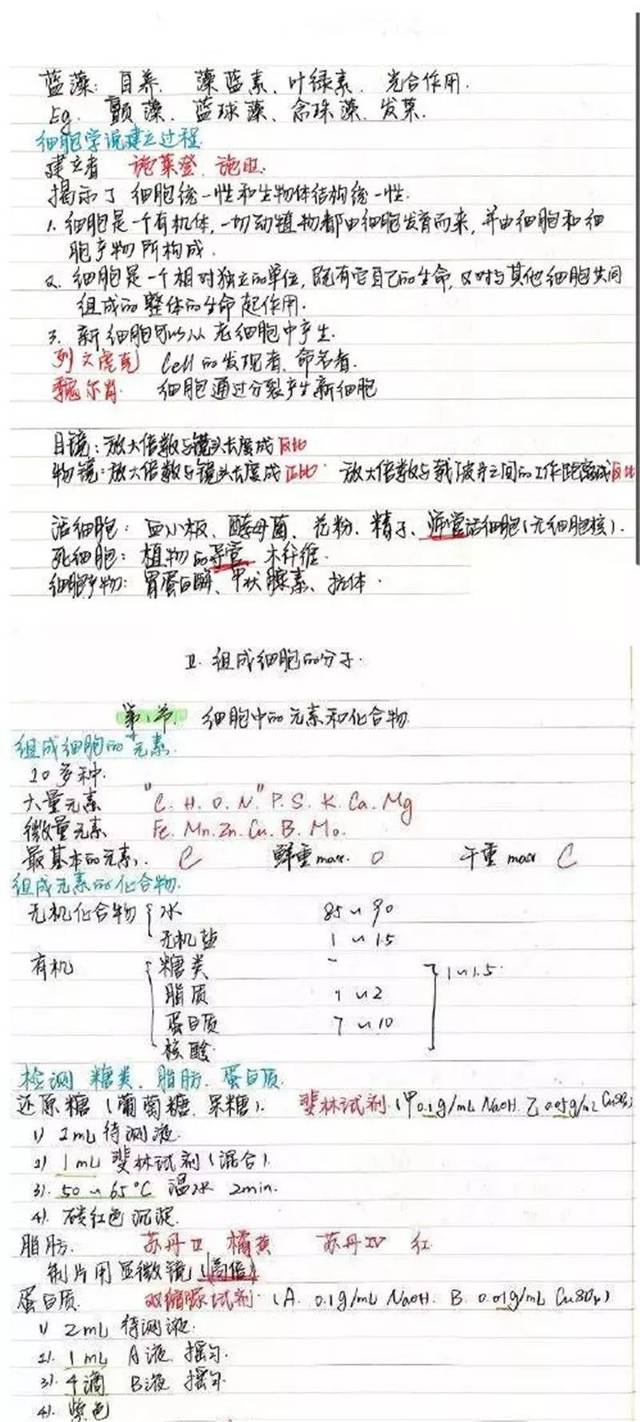 蓝藻: 自养. 藻蓝素、叶绿素. 光合作用.
Eg. 颤藻、蓝球藻、念珠藻、发菜.
细胞学说建立过程.
建立者 施莱登、施旺.
揭示了 细胞统一性和生物体结构统一性.
1. 细胞是一个有机体, 一切动植物都由细胞发育而来, 并由细胞和细
胞产物所构成.
2. 细胞是一个相对独立的单位, 既有它自己的生命, 又对与其他细胞共同
组成的整体的生命起作用.
3. 新细胞可以从老细胞中产生.
列文虎克 Cell的发现者、命名者.
魏尔肖. 细胞通过分裂产生新细胞
目镜: 放大倍数与镜头长度成反比
物镜: 放大倍数与镜头长度成正比. 放大倍数与载波片之间的工作距离成反比
活细胞: 血小板、酵母菌、花粉、精子、筛管活细胞(无细胞核).
死细胞: 植物的导管、木纤维.
细胞产物: 胃蛋白酶、甲状腺素、抗体.
II. 组成细胞的分子.
第1节. 细胞中的元素和化合物
组成细胞的元素.
20多种.
大量元素 "C. H. O. N." P. S. K. Ca. Mg
微量元素 Fe. Mn. Zn. Cu. B. Mo.
最基本的元素. C 鲜重max. O 干重max C
组成元素的化合物.
无机化合物 { 水 85~90
无机盐 1~1.5
有机 { 糖类 1~1.5
脂质 1~2
蛋白质 7~10
核酸
检测 糖类、脂肪、蛋白质.
还原糖 (葡萄糖、果糖). 斐林试剂 (甲 0.1g/mL NaOH 乙 0.05g/mL CuSO4)
1) 2mL 待测液
2) 1mL 斐林试剂 (混合).
3). 50~65°C 温水 2min.
4). 砖红色沉淀.
脂肪. 苏丹III 橘黄 苏丹IV 红
制片用显微镜 (高倍)
蛋白质. 双缩脲试剂. (A. 0.1g/mL NaOH. B. 0.01g/mL CuSO4)
1) 2mL 待测液.
2). 1mL A液 摇匀.
3). 4滴 B液 摇匀.
4). 紫色